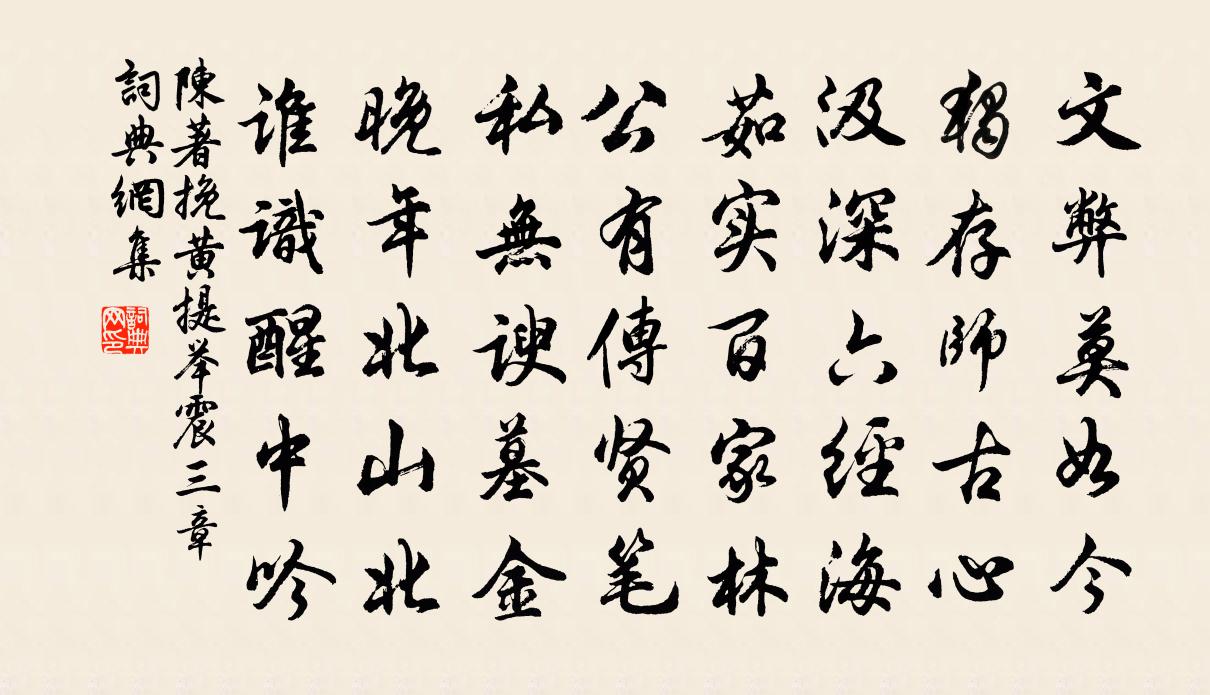 文弊莫如今
獨存師古心
汲深六經海
茹实百家林
公有傳贤笔
私無諛墓金
晚年北山北
誰識醒中吟
陳著挽黄提举震三章
詞典網集
詞典网印